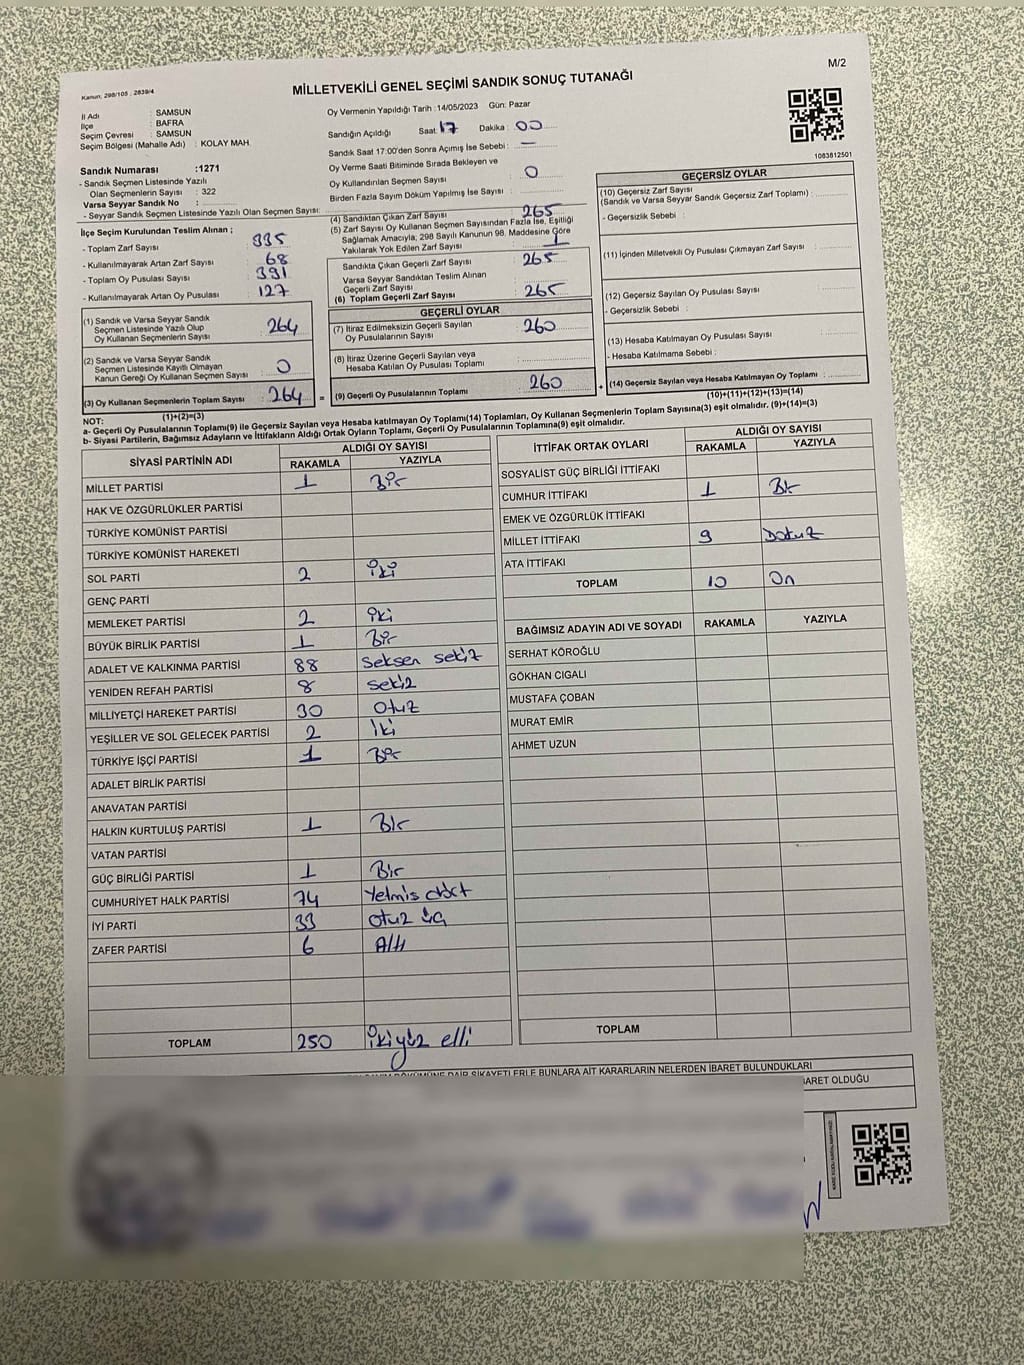 M/2
Kanun; 298/105 : 2839/4
MİLLETVEKİLİ GENEL SEÇİMİ SANDIK SONUÇ TUTANAĞI
İl Adı : SAMSUN
İlçe : BAFRA
Seçim Çevresi : SAMSUN
Seçim Bölgesi (Mahalle Adı) : KOLAY MAH.
Sandık Numarası :1271
- Sandık Seçmen Listesinde Yazılı
Olan Seçmenlerin Sayısı : 322
Varsa Seyyar Sandık No :
- Seyyar Sandık Seçmen Listesinde Yazılı Olan Seçmen Sayısı:
Oy Vermenin Yapıldığı Tarih :14/05/2023 Gün: Pazar
Sandığın Açıldığı Saat 17 Dakika : 00
Sandık Saat 17:00'den Sonra Açımış İse Sebebi : —
Oy Verme Saati Bitiminde Sırada Bekleyen ve
Oy Kullandırılan Seçmen Sayısı : 0
Birden Fazla Sayım Döküm Yapılmış İse Sayısı :
1083812501
İlçe Seçim Kurulundan Teslim Alınan ;
- Toplam Zarf Sayısı : 335
- Kullanılmayarak Artan Zarf Sayısı : 68
- Toplam Oy Pusulası Sayısı : 391
- Kullanılmayarak Artan Oy Pusulası : 127
(1) Sandık ve Varsa Seyyar Sandık
Seçmen Listesinde Yazılı Olup
Oy Kullanan Seçmenlerin Sayısı : 264
(2) Sandık ve Varsa Seyyar Sandık
Seçmen Listesinde Kayıtlı Olmayan
Kanun Gereği Oy Kullanan Seçmen Sayısı : 0
(3) Oy Kullanan Seçmenlerin Toplam Sayısı : 264
(1)+(2)=(3)
(4) Sandıktan Çıkan Zarf Sayısı : 265
(5) Zarf Sayısı Oy Kullanan Seçmen Sayısından Fazla İse, Eşitliği
Sağlamak Amacıyla, 298 Sayılı Kanunun 98. Maddesine Göre
Yakılarak Yok Edilen Zarf Sayısı : 1
Sandıkta Çıkan Geçerli Zarf Sayısı : 265
Varsa Seyyar Sandıktan Teslim Alınan
Geçerli Zarf Sayısı :
(6) Toplam Geçerli Zarf Sayısı : 265
GEÇERLİ OYLAR
(7) İtiraz Edilmeksizin Geçerli Sayılan
Oy Pusulalarının Sayısı : 260
(8) İtiraz Üzerine Geçerli Sayılan veya
Hesaba Katılan Oy Pusulası Toplamı :
= (9) Geçerli Oy Pusulalarının Toplamı : 260 +
GEÇERSİZ OYLAR
(10) Geçersiz Zarf Sayısı
(Sandık ve Varsa Seyyar Sandık Geçersiz Zarf Toplamı) :
- Geçersizlik Sebebi :
(11) İçinden Milletvekili Oy Pusulası Çıkmayan Zarf Sayısı :
(12) Geçersiz Sayılan Oy Pusulası Sayısı :
- Geçersizlik Sebebi :
(13) Hesaba Katılmayan Oy Pusulası Sayısı :
- Hesaba Katılmama Sebebi :
(14) Geçersiz Sayılan veya Hesaba Katılmayan Oy Toplamı :
(10)+(11)+(12)+(13)=(14)
NOT:
a- Geçerli Oy Pusulalarının Toplamı(9) ile Geçersiz Sayılan veya Hesaba katılmayan Oy Toplamı(14) Toplamları, Oy Kullanan Seçmenlerin Toplam Sayısına(3) eşit olmalıdır. (9)+(14)=(3)
b- Siyasi Partilerin, Bağımsız Adayların ve İttifakların Aldığı Ortak Oyların Toplamı, Geçerli Oy Pusulalarının Toplamına(9) eşit olmalıdır.
SİYASİ PARTİNİN ADI ALDIĞI OY SAYISI
RAKAMLA YAZIYLA
MİLLET PARTİSİ 1 Bir
HAK VE ÖZGÜRLÜKLER PARTİSİ
TÜRKİYE KOMÜNİST PARTİSİ
TÜRKİYE KOMÜNİST HAREKETİ
SOL PARTİ 2 iki
GENÇ PARTİ
MEMLEKET PARTİSİ 2 iki
BÜYÜK BİRLİK PARTİSİ 1 Bir
ADALET VE KALKINMA PARTİSİ 88 Seksen sekiz
YENİDEN REFAH PARTİSİ 8 sekiz
MİLLİYETÇİ HAREKET PARTİSİ 30 otuz
YEŞİLLER VE SOL GELECEK PARTİSİ 2 İki
TÜRKİYE İŞÇİ PARTİSİ 1 Bir
ADALET BİRLİK PARTİSİ
ANAVATAN PARTİSİ
HALKIN KURTULUŞ PARTİSİ 1 Bir
VATAN PARTİSİ
GÜÇ BİRLİĞİ PARTİSİ 1 Bir
CUMHURİYET HALK PARTİSİ 74 Yetmiş dört
İYİ PARTİ 33 otuz üç
ZAFER PARTİSİ 6 Altı
TOPLAM 250 İkiyüz elli
İTTİFAK ORTAK OYLARI ALDIĞI OY SAYISI
RAKAMLA YAZIYLA
SOSYALİST GÜÇ BİRLİĞİ İTTİFAKI
CUMHUR İTTİFAKI 1 Bir
EMEK VE ÖZGÜRLÜK İTTİFAKI
MİLLET İTTİFAKI 9 Dokuz
ATA İTTİFAKI
TOPLAM 10 On
BAĞIMSIZ ADAYIN ADI VE SOYADI RAKAMLA YAZIYLA
SERHAT KÖROĞLU
GÖKHAN CIGALI
MUSTAFA ÇOBAN
MURAT EMİR
AHMET UZUN
TOPLAM
DÖKÜMÜNE DAİR ŞİKAYETLERLE BUNLARA AİT KARARLARIN NELERDEN İBARET BULUNDUKLARI
BARET OLDUĞU